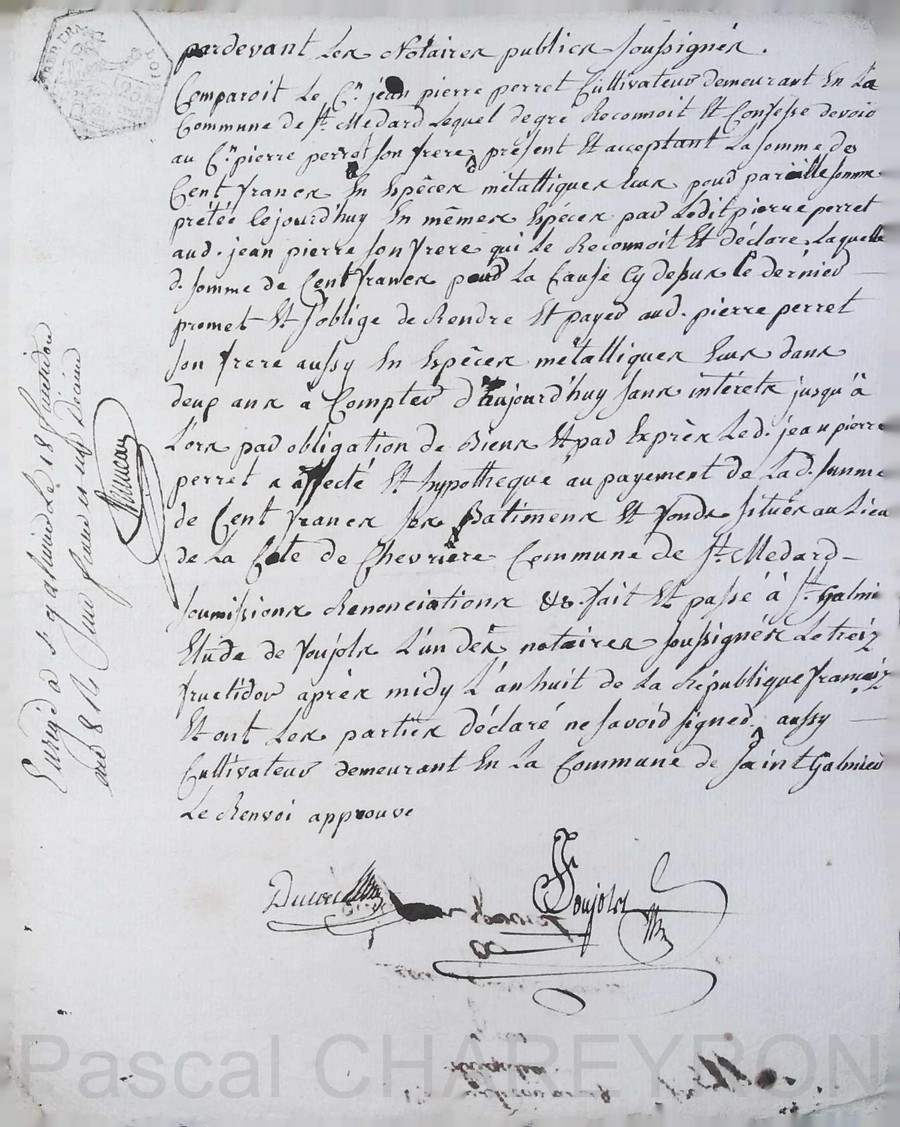 pardevant Les Notaires publics Soussignés.
Comparoit Le Cn. jean pierre perret Cultivateur demeurant En La
Commune de St. Medard Lequel de gré Reconnoit Et Confesse devoir
au Cn. pierre perret son frere, présent Et acceptant La somme de
Cent francs En Espêces métalliques Eux pour pareille somme
prétée Cejourd'huy En mêmes Espéces par Ledit pierre perret
aud. jean pierre son frere qui Le Reconnoit Et déclare, Laquelle
d. somme de Cent francs pour La Cause Cy dessus Ce dérnier
promet Et s'oblige de Rendre Et payer aud. pierre perret
son frere aussy En Espêces métalliques Eux dans
deux ans à Compter d'aujourd'huy sans intérets jusqu'à
Lors par obligation de Biens Et par Exprès Led. jean pierre
perret a affecté Et hypothequé au payement de Lad. somme
de Cent francs ses Batimens Et fonds situés au Lieu
de La Cote de Chevrière Commune de St. Medard
soumissions Renonciations &c. fait Et passé à St. Galmi
Etude de foujols L'un dés notaires soussignés Le treiz
fructidor après midy L'an huit de La République françaiz
Et ont Les parties déclaré ne savoir signer, aussy
Cultivateur demeurant En La Commune de saint Galmier
Le Renvoi approuvé
foujols
Enrgé a St galmier Le 18 fructidor
an 8
Pascal CHAREYRON